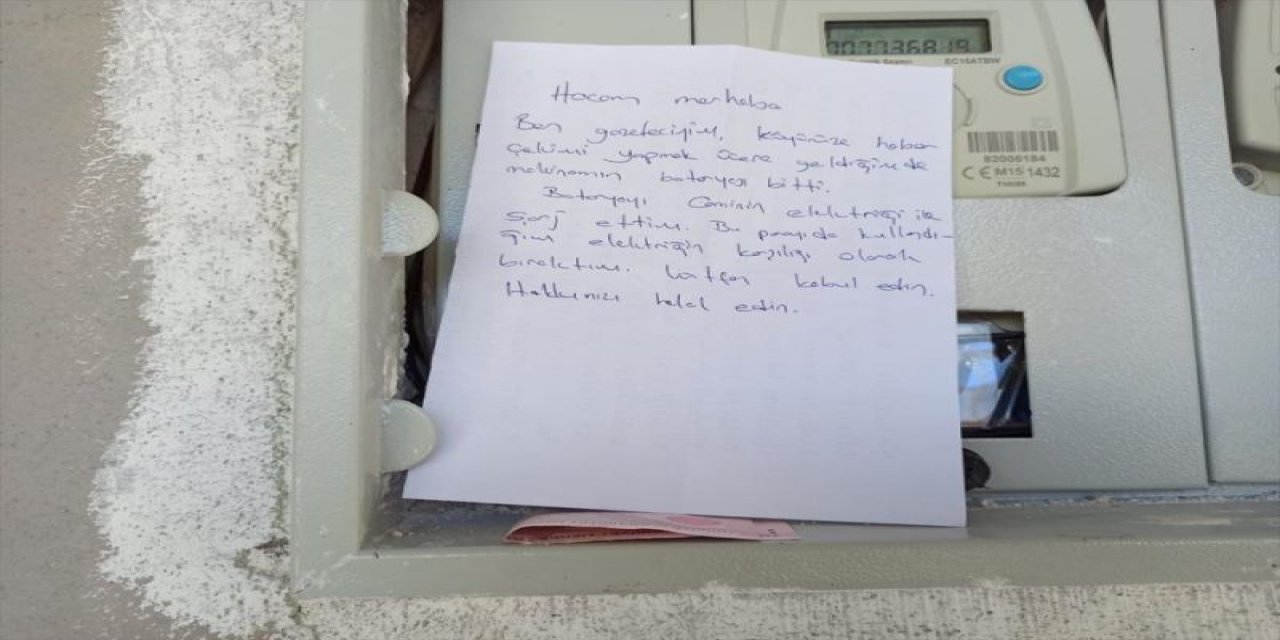 0077368.19
EC16ATBW
82006184
CE M15 1432
Hocam merhaba
Ben gazeteciyim, köyünüze haber
çekimi yapmak üzere geldiğimde
makinamın bataryası bitti.
Bataryayı Caminin elektriği ile
şarj ettim. Bu parayıda kullandı-
ğım elektriğin karşılığı olarak
bıraktım. Lütfen kabul edin.
Hakkınızı helal edin.